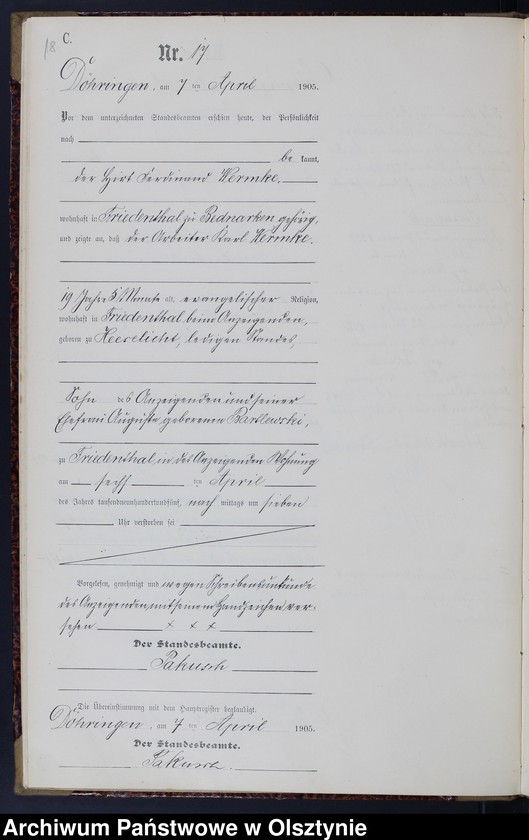 18
C.
Nr. 17
Döhringen, am 7 ten April 1905.
Vor dem unterzeichneten Standesbeamten erschien heute, der Persönlichkeit
nach
be kannt,
der Hirt Ferdinand Wermke,
wohnhaft in Friedenthal zu Bednarken gehörig,
und zeigte an, daß der Arbeiter Karl Wermke,
19 Jahre 5 Monate alt, evangelischer Religion,
wohnhaft in Friedenthal beim Anzeigenden,
geboren zu Heeselicht, ledigen Standes,
Sohn des Anzeigenden und seiner
Ehefrau Auguste geborenen
zu Friedenthal in des Anzeigenden Wohnung
am sechs ten April
des Jahres tausendneunhundertundfünf, nach mittags um sieben
Uhr verstorben sei
Vorgelesen, genehmigt und wegen Schreibensunkunde
des Anzeigenden mit seinem Handzeichen ver-
sehen x x x
Der Standesbeamte.
Die Übereinstimmung mit dem Hauptregister beglaubigt.
Döhringen, am 7 ten April 1905.
Der Standesbeamte.
Archiwum Państwowe w Olsztynie